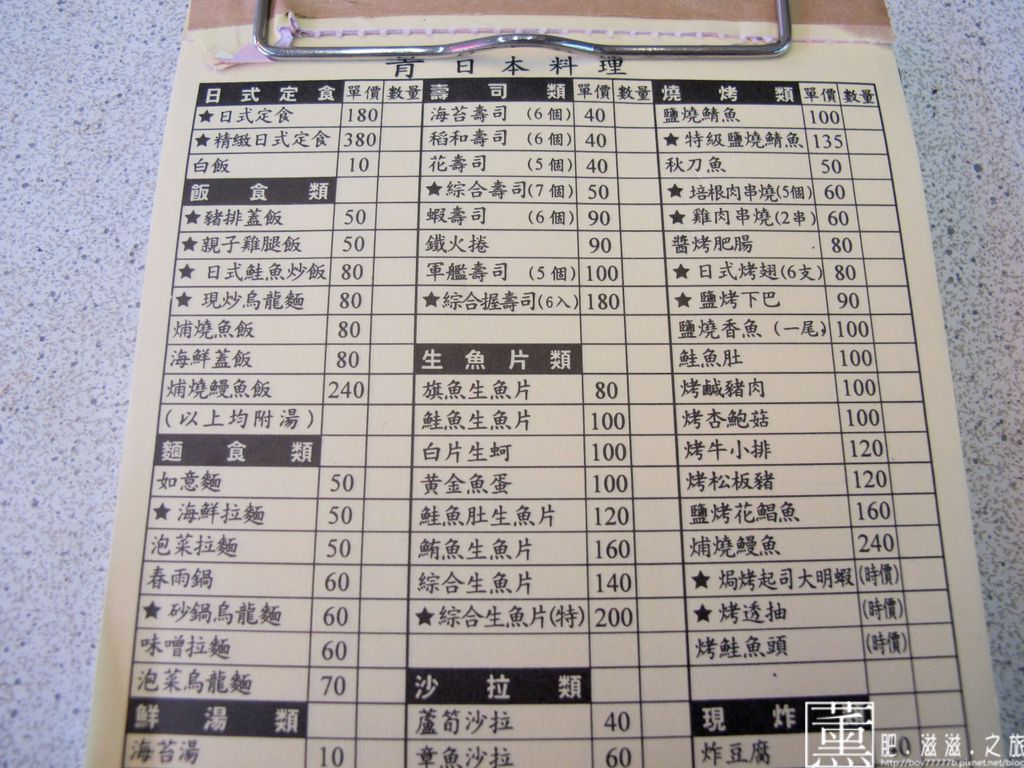 日本料理
日式定食 單價 數量
★日式定食 180
★精緻日式定食 380
白飯 10
飯食類
★豬排蓋飯 50
★親子雞腿飯 50
★日式鮭魚炒飯 80
★現炒烏龍麵 80
焿燒魚飯 80
海鮮蓋飯 80
焿燒鰻魚飯 240
(以上均附湯)
麵食類
如意麵 50
★海鮮拉麵 50
泡菜拉麵 50
春雨鍋 60
★砂鍋烏龍麵 60
味噌拉麵 60
泡菜烏龍麵 70
鮮湯類
海苔湯 10
壽司類 單價 數量
海苔壽司 (6個) 40
稻和壽司 (6個) 40
花壽司 (5個) 40
★綜合壽司(7個) 50
蝦壽司 (6個) 90
鐵火捲 90
軍艦壽司 (5個) 100
★綜合握壽司(6入) 180
生魚片類
旗魚生魚片 80
鮭魚生魚片 100
白片生蚵 100
黃金魚蛋 100
鮭魚肚生魚片 120
鮪魚生魚片 160
綜合生魚片 140
★綜合生魚片(特) 200
沙拉類
蘆筍沙拉 40
章魚沙拉 60
燒烤類 單價 數量
鹽燒鯖魚 100
★特級鹽燒鯖魚 135
秋刀魚 50
★培根肉串燒(5個) 60
★雞肉串燒(2串) 60
醬烤肥腸 80
★日式烤翅(6支) 80
★鹽烤下巴 90
鹽燒香魚 (一尾) 100
鮭魚肚 100
烤鹹豬肉 100
烤杏鮑菇 100
烤牛小排 120
烤松板豬 120
鹽烤花鯧魚 160
焿燒鰻魚 240
★焗烤起司大明蝦 (時價)
★烤透抽 (時價)
烤鮭魚頭 (時價)
現炸
炸豆腐
薰 肥.滋滋.之旅
http://bov77777b.pixnet.net/blog